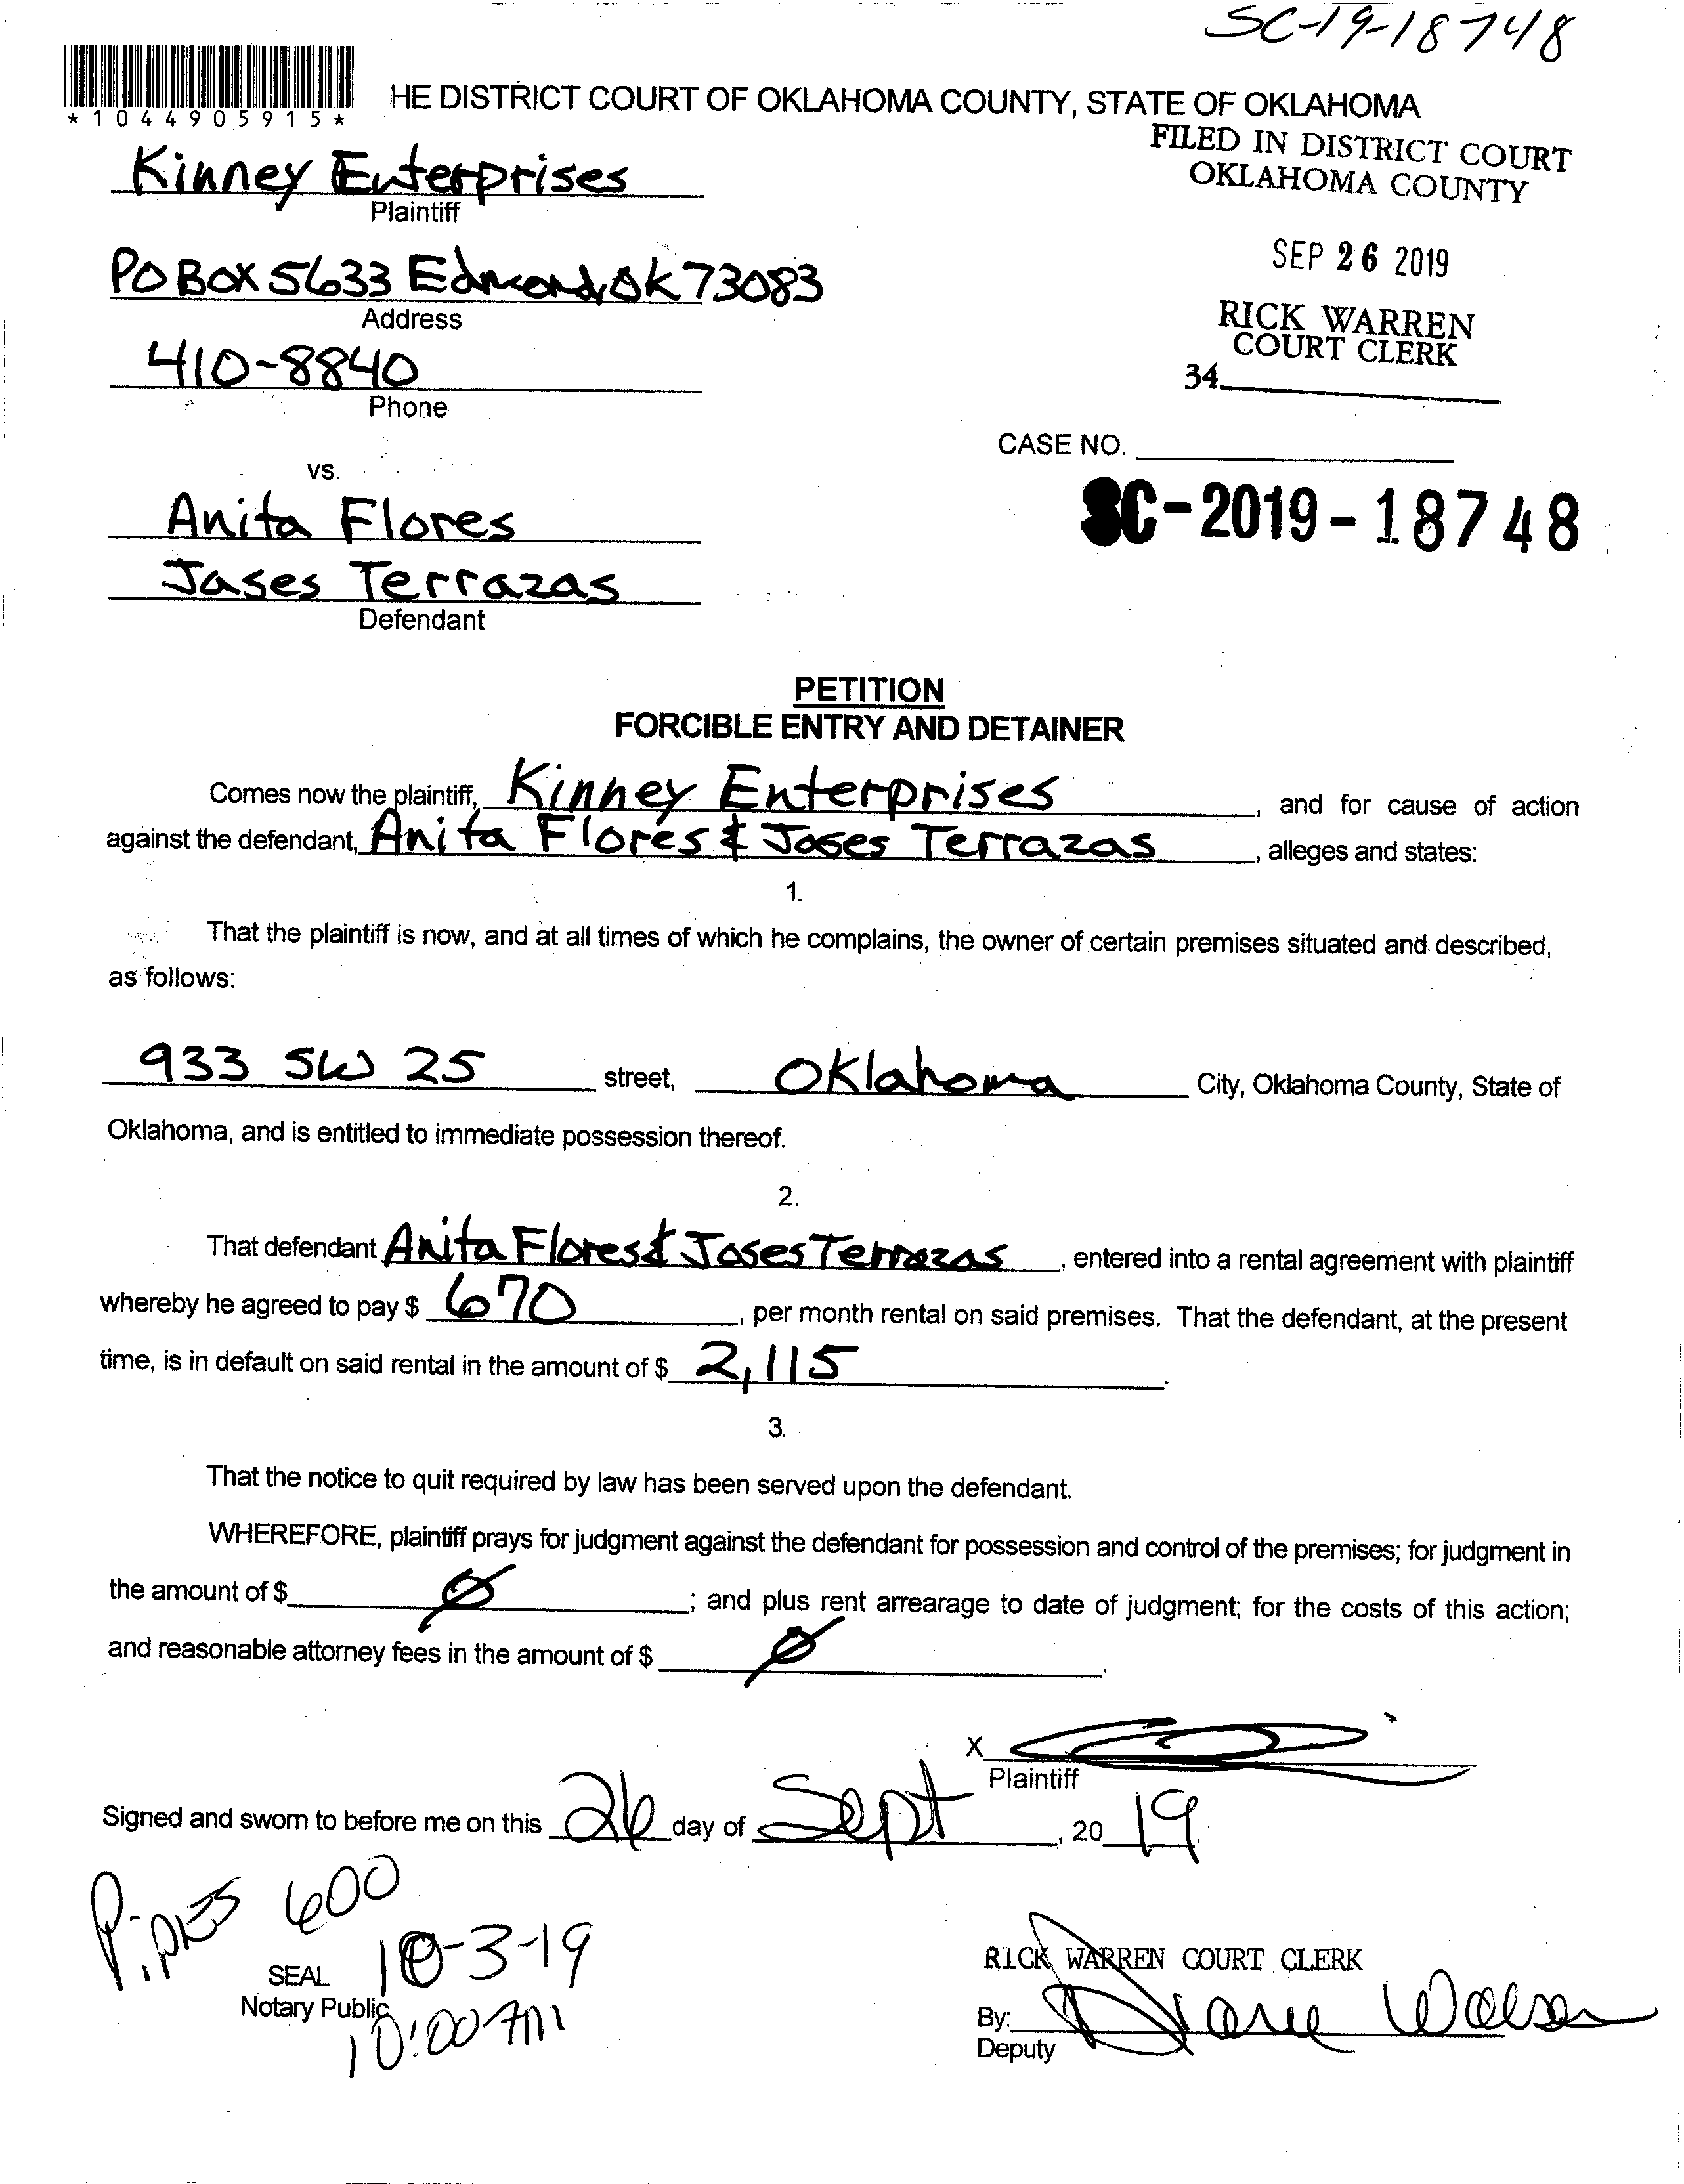 SC-19-18748
*1044905915*
HE DISTRICT COURT OF OKLAHOMA COUNTY, STATE OF OKLAHOMA
FILED IN DISTRICT COURT
OKLAHOMA COUNTY
Kinney Enterprises
Plaintiff
SEP 26 2019
PO BOX 5633 Edmond, OK 73083
Address
RICK WARREN
COURT CLERK
410-8840
34
Phone
CASE NO.
vs.
SC-2019-18748
Anita Flores
Jases Terrazas
Defendant
PETITION
FORCIBLE ENTRY AND DETAINER
Comes now the plaintiff, Kinney Enterprises, and for cause of action
against the defendant, Anita Flores & Joses Terrazas, alleges and states:
1.
That the plaintiff is now, and at all times of which he complains, the owner of certain premises situated and described,
as follows:
933 SW 25 street, Oklahoma City, Oklahoma County, State of
Oklahoma, and is entitled to immediate possession thereof.
2.
That defendant Anita Flores & Joses Terrazas, entered into a rental agreement with plaintiff
whereby he agreed to pay $ 670, per month rental on said premises. That the defendant, at the present
time, is in default on said rental in the amount of $ 2,115.
3.
That the notice to quit required by law has been served upon the defendant.
WHEREFORE, plaintiff prays for judgment against the defendant for possession and control of the premises; for judgment in
the amount of $ Ø; and plus rent arrearage to date of judgment; for the costs of this action;
and reasonable attorney fees in the amount of $ Ø.
X
Plaintiff
Signed and sworn to before me on this 26 day of Sept, 2019.
600
10-3-19
SEAL
Notary Public
10:00 AM
RICK WARREN COURT CLERK
By:
Deputy